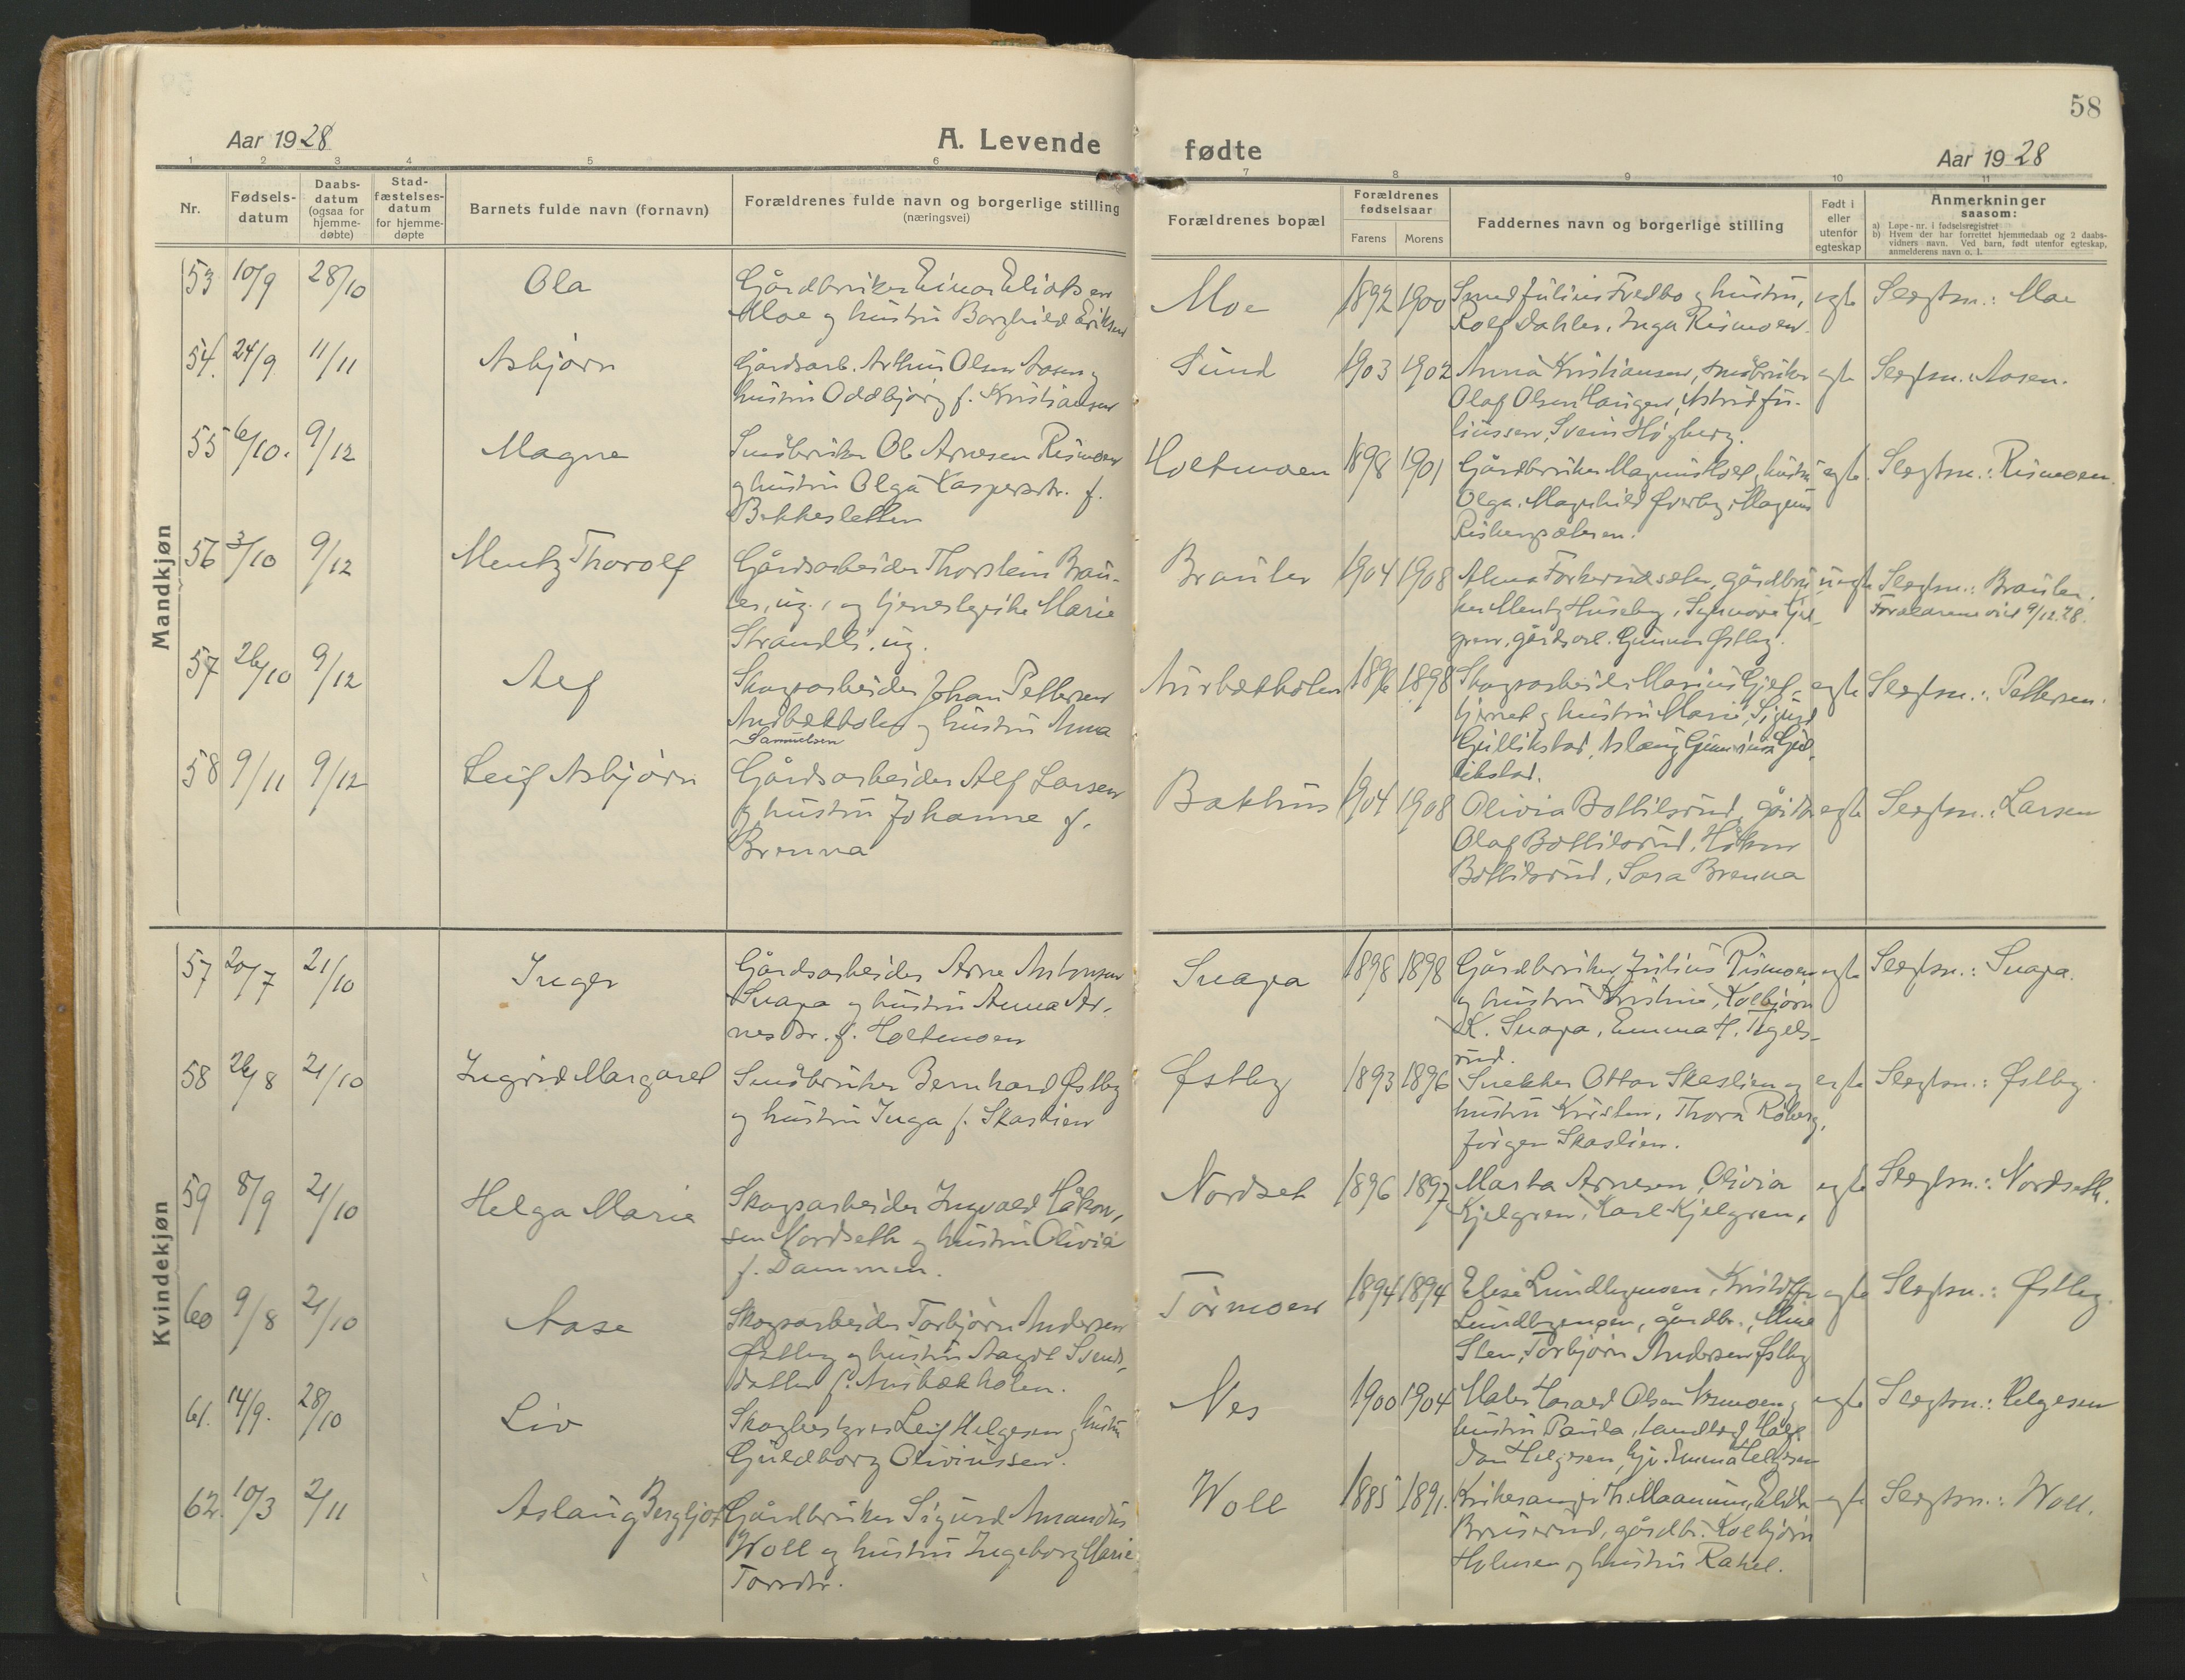 58
Aar 1928
A. Levende
fødte
Aar 1928
1 2 3 4 5 6 7 8 9 10 11
Nr.
Fødsels-
datum
Daabs-
datum
(ogsaa for
hjemme-
døbte)
Stad-
fæstelses-
datum
for hjemme-
døpte
Barnets fulde navn (fornavn)
Forældrenes fulde navn og borgerlige stilling
(næringsvei)
Forældrenes bopæl
Forældrenes
fødselsaar
Farens Morens
Faddernes navn og borgerlige stilling
Født i
eller
utenfor
egteskap
Anmerkninger
saasom:
a) Løpe-nr. i fødselsregistret
b) Hvem der har forrettet hjemmedaab og 2 daabs-
vidners navn. Ved barn, født utenfor egteskap,
anmelderens navn o. l.
Mandkjøn
53 10/9 28/10 Ola
Gårdbruker Einar
Moe og hustru Borghild Eriksen
Moe 1892 1900
Smed Julius Fredbo og hustru,
Rolf Dahlen, Inga Rismoen.
egte Slegtsn.: Moe
54. 24/9 11/11 Asbjørn
Gårdsarb. Arthur Olsen Aasen og
hustru Oddbjørg f. Kristiansen
Sund 1903 1902
Anna Kristiansen, småbruker
Olaf Olsen Haugen, Astrid Ju-
liussen, Svein Høgberg.
egte Slegtsn.: Aasen.
55 6/10. 9/12 Magne
Småbruker Ole Arnesen Rismoen
og hustru Olga Kaspersdtr. f.
Bekkesletten
Holtmoen 1898 1901
Gårdbruker Magnus Hole, hustru
Olga, Magnhild Øverby, Magnus
egte. Slegtsn.: Rismoen.
56 3/10 9/12 Mentz Thorolf
Gårdsarbeider Thorstein Brau-
ler, ug., og tjenestepike Marie
Strandli, ug.
Brauler 1904 1908
Alma Torkerudsæter, gårdbru-
ker Mentz Huseby, Synnøve Kjel-
gren, gårdsarb. Gunnar Østby.
uegte Slegtsn.: Brauler.
Foreldrene viet 9/12.28.
57 26/10 9/12 Alf
Skogsarbeider Johan Pettersen
Aurbekkholen og hustru Anna
Samuelsen
Aurbekkholen 1896 1898
Skogsarbeider Marius Gjel-
tjernet og hustru Marie, Sigurd
Gullikstad, Aslaug Gunvine Gul-
likstad.
egte Slegtsn.: Pettersen.
58 9/11 9/12 Leif Asbjørn
Gårdsarbeider Alf Larsen
og hustru Johanne f.
Brenna
Bakhus 1904 1908
Olivia Bottilsrud, gårdbr.
Olaf Bottilsrud, Håkon
Bottilsrud, Sara Brenna
egte Slegtsn.: Larsen
Kvindekjøn
57 20/7 21/10 Inger
Gårdsarbeider Arne Antonsen
Snapa og hustru Anna Ar-
nesdtr. f. Holtmoen
Snapa 1898 1898
Gårdbruker Julius Rismoen
og hustru Kristine, Kolbjørn
K. Snapa, Emma H. Tegels-
rud.
egte Slegtsn.: Snapa.
58 26/8 21/10 Ingrid Margaret
Småbruker Bernhard Østby
og hustru Inga f. Skaslien
Østby 1893 1896
Snekker Ottar Skaslien og
hustru Kirsten, Thora Roberg,
Jørgen Skaslien.
egte Slegtsn.: Østby.
59 8/9 21/10 Helga Marie
Skogsarbeider Ingvald Håkon-
sen Nordseth og hustru Olivia
f. Dammen.
Nordset 1896 1897
Marta Arnesen, Olivia
Kjelgren, Karl Kjelgren.
egte Slegtsn.: Nordseth.
60 9/8 21/10 Aase
Skogsarbeider Torbjørn Andersen
Østby og hustru Aagot Svends-
datter f. Aurbækholen.
Tørmoen 1894 1894
Elise Lundbymoen, Kristoffer
Lundbymoen, gårdbr., Mine
Sten, Torbjørn Andersen Østby
egte Slegtsn.: Østby.
61. 14/9. 28/10 Liv
Skogbestyrer Leif Helgesen og hustru
Guldborg Oliviussen.
Nes 1900 1904
Maler Harald Olsen Normoen og
hustru Paula, Half-
dan Helgesen, Emma Helgesen
egte Slegtsn.: Helgesen
62. 10/3 2/11 Aslaug Bergljot
Gårdbruker Sigurd Amandus
Woll og hustru Ingeborg Marie
Torsdtr.
Woll 1885 1891.
Kirkesanger Maanum,
Bruserud, gårdbr. Kolbjørn
Holmsen og hustru Rakel.
egte Slegtsn.: Woll.